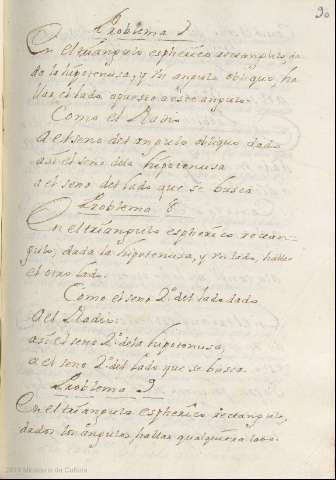 90
Problema 7
En el triangulo espherico rectangulo, da-
da la hipotenusa, y un angulo obliquo, ha-
llar el lado opuesto a este angulo.
Como el Radio
al el seno del angulo obliquo dado
asi el seno dela hipotenusa
a el seno del lado que se busca
Problema 8
En el triangulo espherico rectan-
gulo, dada la hipotenusa, y un lado, hallar
el otro lado.
Como el seno 2º del lado dado
Al el Radio:
asi el seno 2º dela hipotenusa,
a el seno 2º del lado que se busca.
Problema 9
En el triangulo espherico rectangulo,
dados los angulos, hallar qualquiera lado.
2019 Ministerio de Cultura